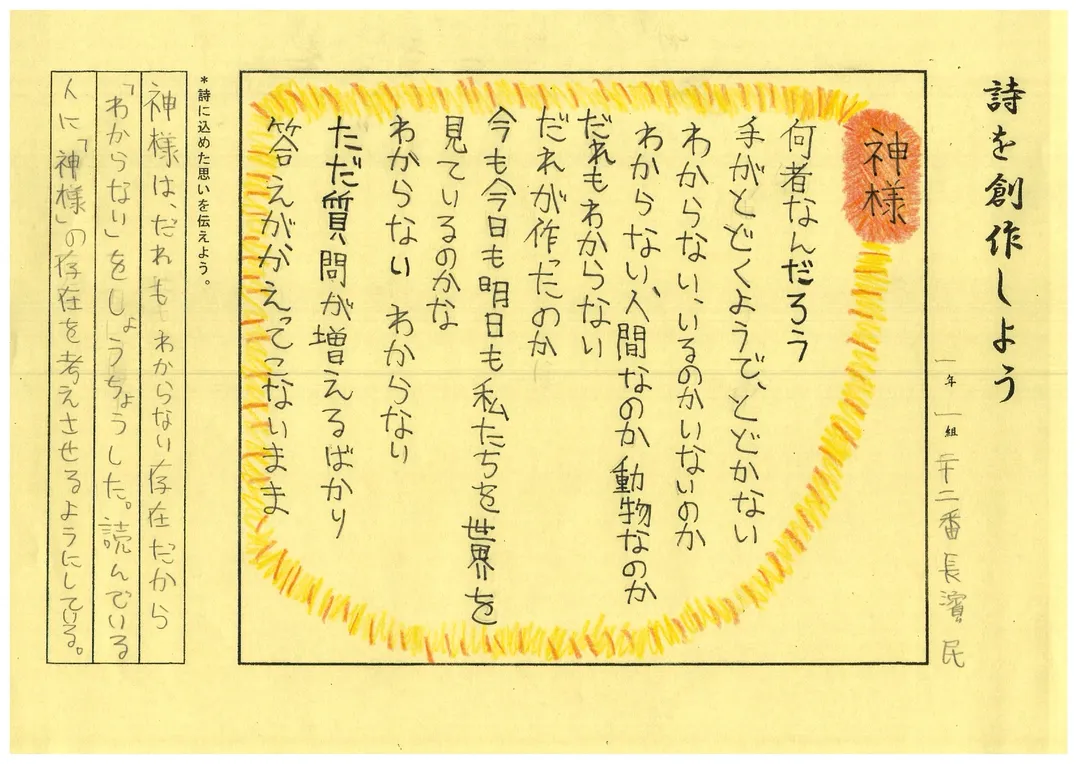 詩を創作しよう
一年 一組 二十二番 長濱 民
神様
何者なんだろう
手がとどくようで、とどかない
わからない、いるのかいないのか
わからない、人間なのか動物なのか
だれもわからない
だれが作ったのか
今も今日も明日も私たちを世界を
見ているのかな
わからない わからない
ただ質問が増えるばかり
答えがかえってこないまま
*詩に込めた思いを伝えよう。
神様は、だれもわからない存在だから
「わからない」をしょうちょうした。読んでいる
人に「神様」の存在を考えさせるようにしている。